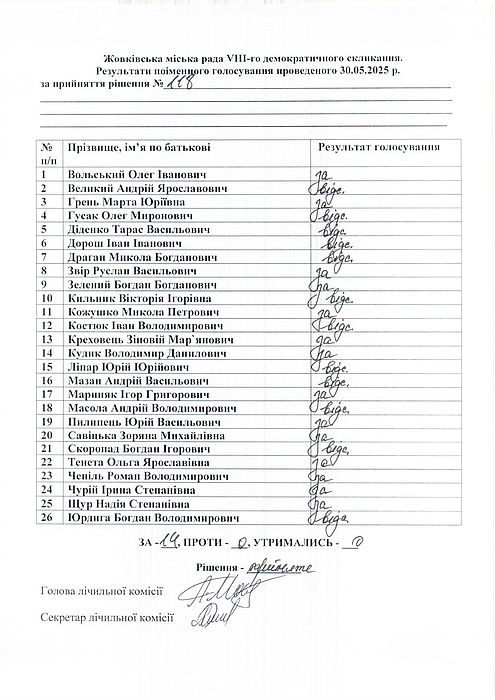 Жовківська міська рада VIII-го демократичного скликання.
Результати поіменного голосування проведеного 30.05.2025 р.
за прийняття рішення № 118
№ п/п Прізвище, ім’я по батькові Результат голосування
1 Вольський Олег Іванович за
2 Великий Андрій Ярославович відс.
3 Грень Марта Юріївна за
4 Гусак Олег Миронович відс.
5 Діденко Тарас Васильович відс.
6 Дорош Іван Іванович відс.
7 Драган Микола Богданович відс.
8 Звір Руслан Васильович за
9 Зелений Богдан Богданович за
10 Кильник Вікторія Ігорівна відс.
11 Кожушко Микола Петрович за
12 Костюк Іван Володимирович відс.
13 Креховець Зіновій Мар`янович за
14 Кудик Володимир Данилович за
15 Ліпар Юрій Юрійович відс.
16 Мазан Андрій Васильович відс.
17 Мариняк Ігор Григорович за
18 Масола Андрій Володимирович відс.
19 Пилипець Юрій Васильович за
20 Савіцька Зоряна Михайлівна за
21 Скоропад Богдан Ігорович відс.
22 Тенета Ольга Ярославівна за
23 Чепіль Роман Володимирович за
24 Чурій Ірина Степанівна за
25 Щур Надія Степанівна за
26 Юрдига Богдан Володимирович відс.
ЗА - 14, ПРОТИ - 0, УТРИМАЛИСЬ - 0
Рішення - прийняте
Голова лічильної комісії
Секретар лічильної комісії